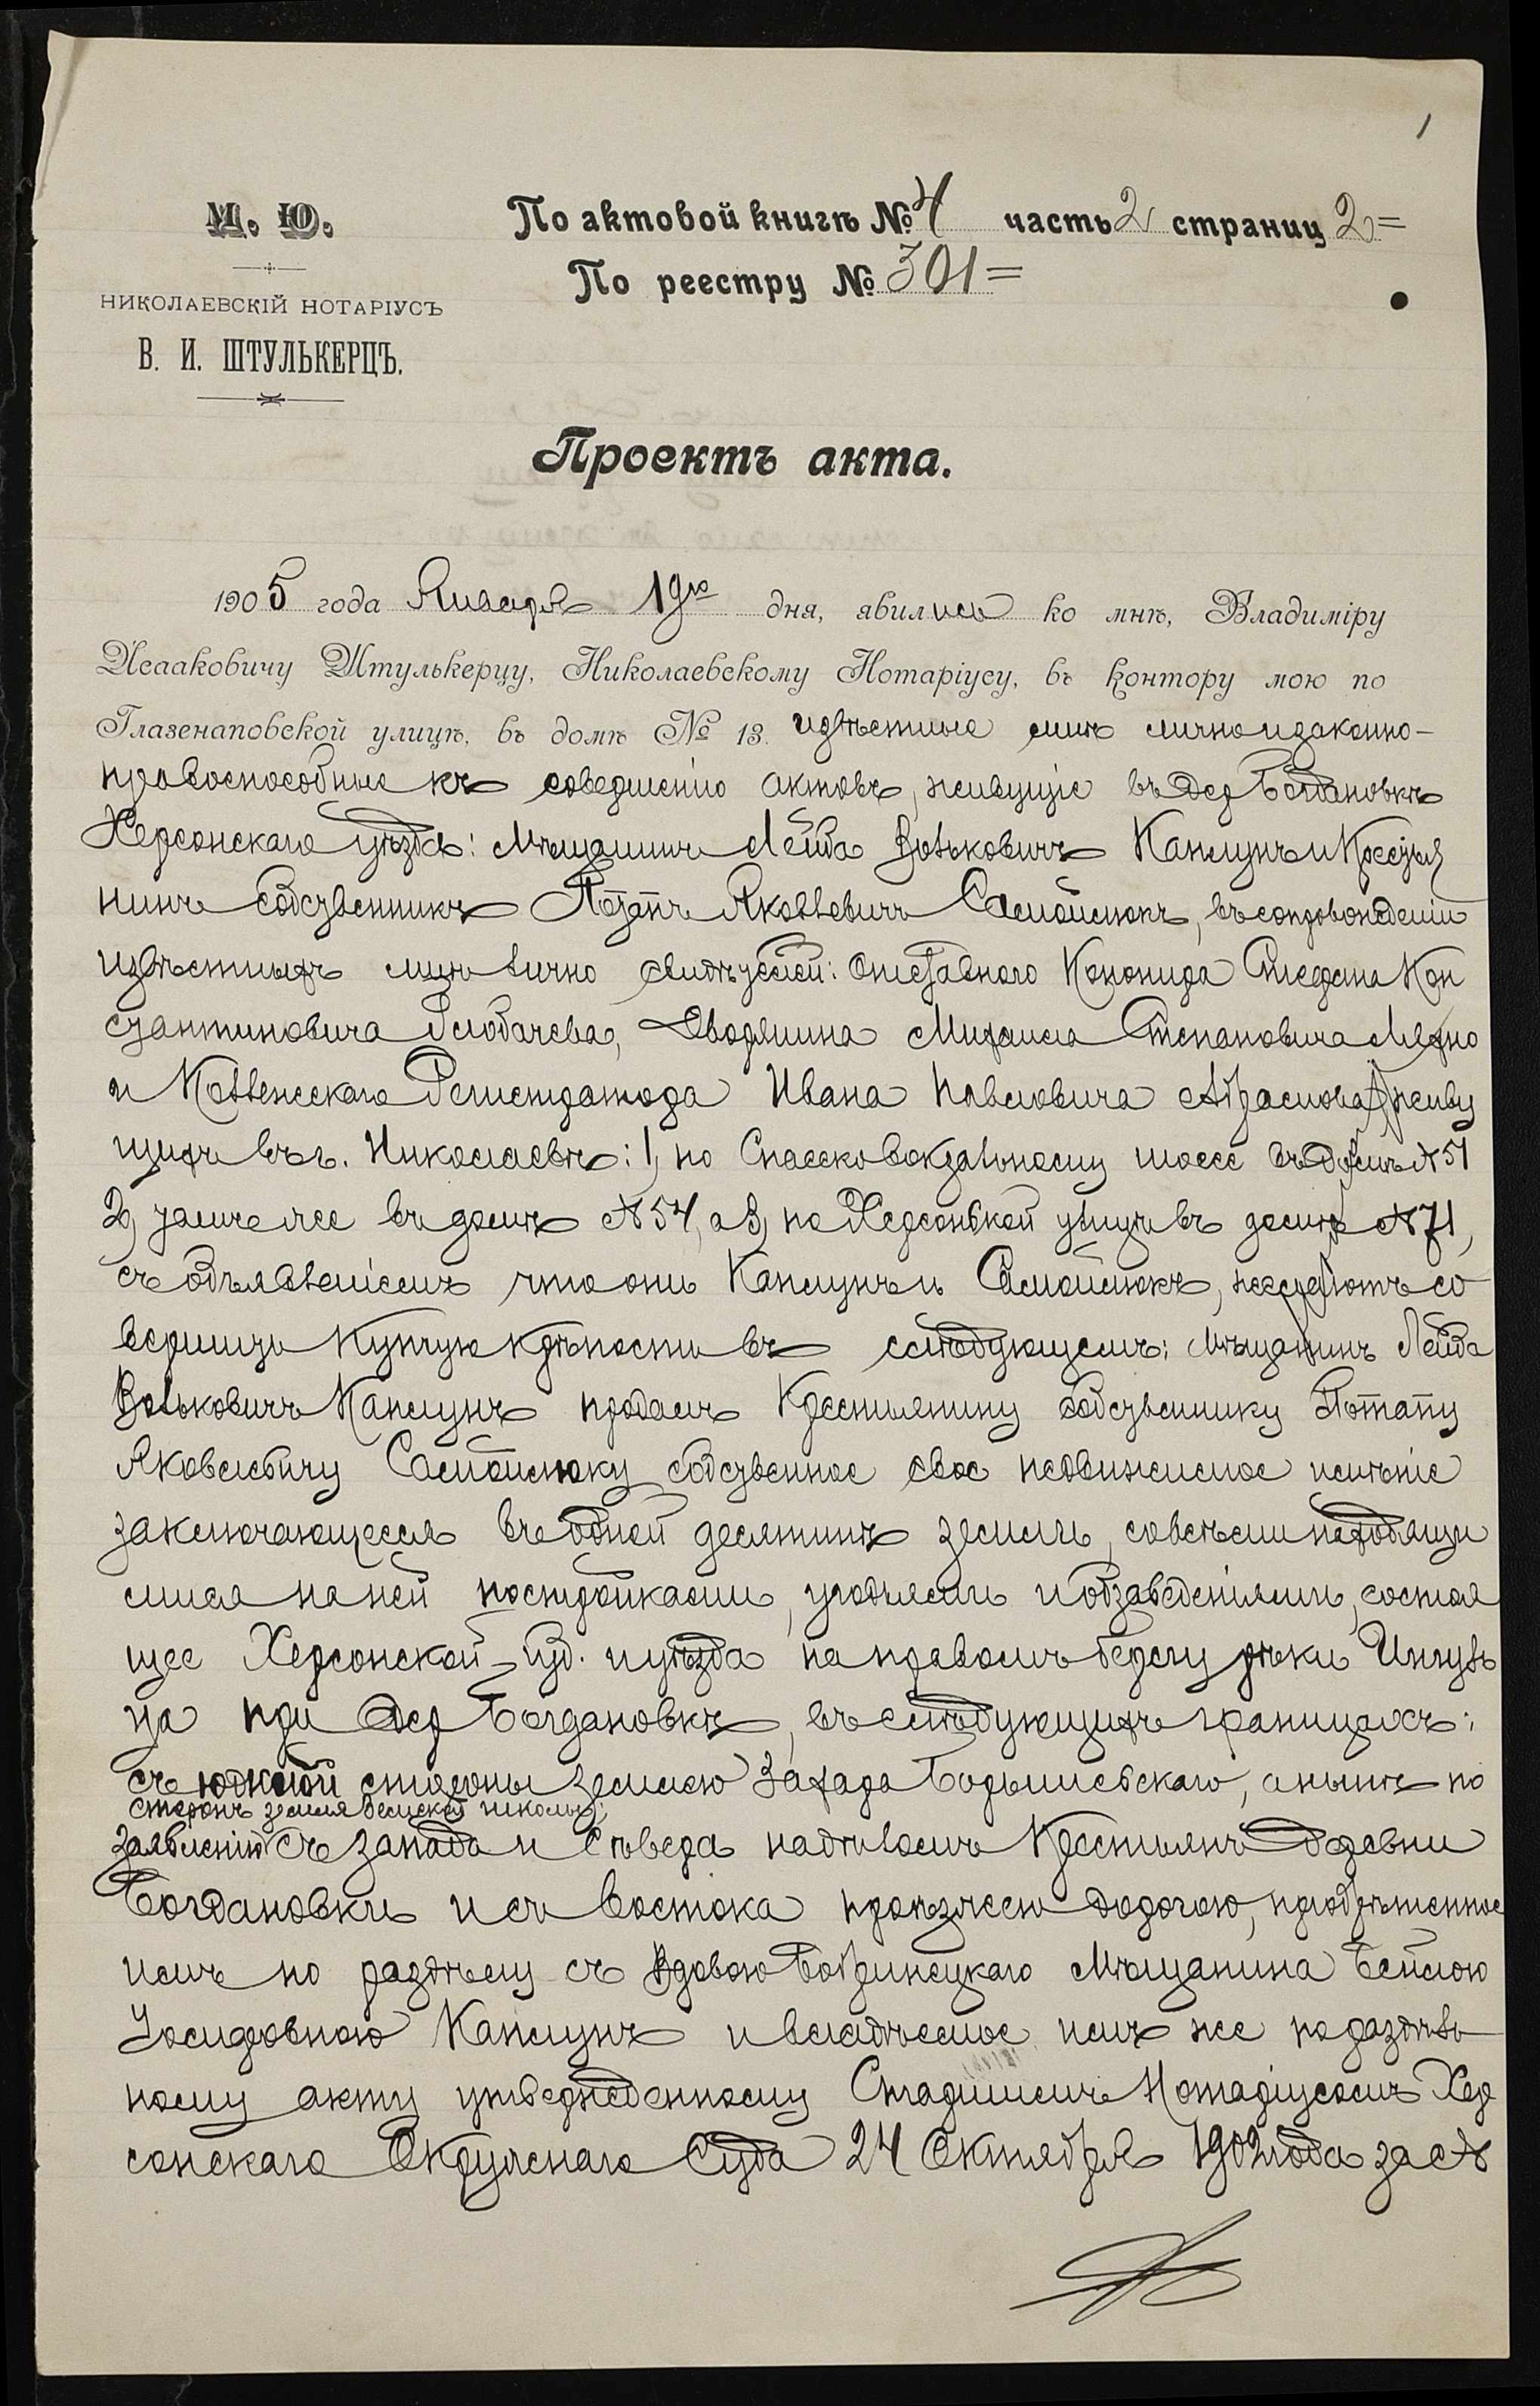 1
М. Ю.
НИКОЛАЕВСКІЙ НОТАРІУСЪ
В. И. ШТУЛЬКЕРЦЪ.
По актовой книгѣ № 4 часть 2 страниц 2=
По реестру № 301=
Проектъ акта.
1905 года Января 19го дня, явились ко мнѣ, Владиміру
Исааковичу Штулькерцу, Николаевскому Нотаріусу, въ контору мою по
Глазенаповской улицѣ, въ домѣ № 13. извѣстные мнѣ лично и законно-
правоспособные къ совершенію актовъ, живущіе въ дер Богдановкѣ
Херсонскаго уѣзда: мѣщанинъ Лейба Волькович Каплунъ и Крестья
нинъ собственникъ Потапъ Яковлевичъ Самойлюкъ, въ сопровожденіи
извѣстныхъ мнѣ лично свидѣтелей: Отставного Канонира Стефана Кон
стантиновича Дворянина Михаила Степановича
и Коллежскаго Регистратора Ивана Павловича Абрамова, живу
щихъ въ г. Николаевѣ: 1, по Спасско вокзальному шоссе въ домѣ № 51
2, тамъ же въ домѣ № 54, а 3, по Херсонской улицѣ въ домѣ № 71,
съ объявленіемъ что они Каплунъ и Самойлюкъ, желаютъ со
вершить купчую крѣпость въ слѣдующемъ: мѣщанинъ Лейба
Вольковичъ Каплунъ продалъ Крестьянину собственнику Потапу
Яковлевичу Самойлюку собственное свое недвижимое имѣніе
заключающееся въ одной десятинѣ земли, со всѣми находящи
мися на ней постройками, угодьями и обзаведеніями, состоя
щее Херсонской губ. и уѣзда на правомъ берегу рѣки Ингуль
ца при дер Богдановкѣ, въ слѣдующихъ границахъ:
съ южной стороны землею Захара а нынѣ по
стороны земля земской школы;
заявленію съ запада и сѣвера надѣломъ Крестьянъ деревни
Богдановки и съ востока проѣзжею дорогою, пріобрѣтенное
имъ по раздѣлу съ вдовою Бобринецкаго Мѣщанина Бейлою
Іосифовною Каплунъ и владѣемое имъ же по раздѣль
ному акту утвержденному Старшимъ Нотаріусомъ Хер
сонскаго Окружнаго Суда 24 Октября 1902 года за №